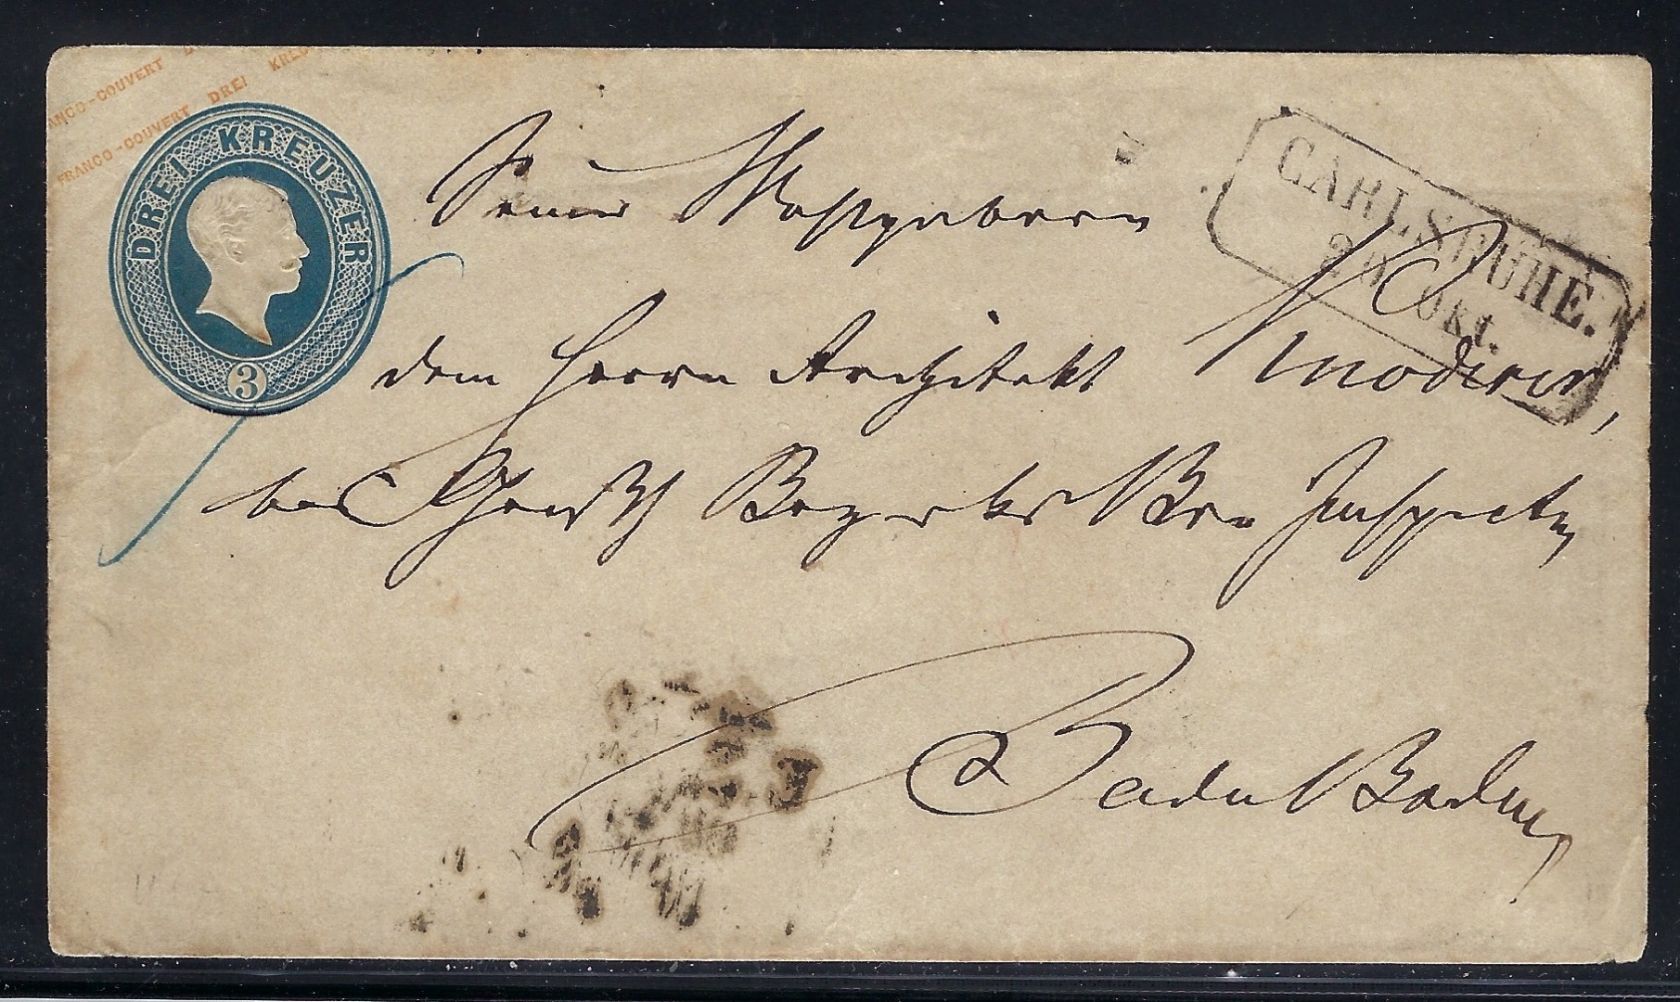 FRANCO-COUVERT
FRANCO-COUVERT DREI KREU
DREI KREUZER
3
CARLSRUHE.
20 Okt.
Seiner Wohlgeboren
dem Herrn Architekt
bei Bezirks Bau Inspection
Baden Baden